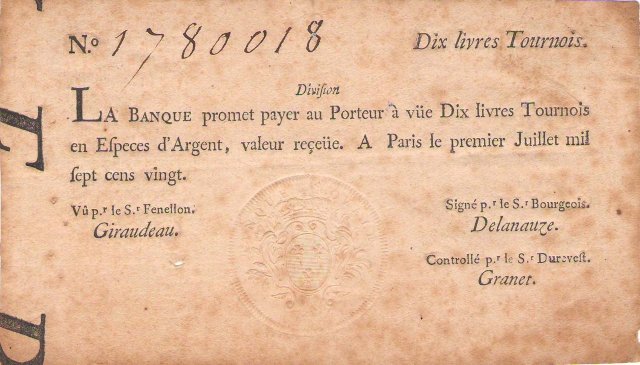 N.º 1780018 Dix livres Tournois.
Diviſion
LA BANQUE promet payer au Porteur à vüe Dix livres Tournois
en Eſpeces d'Argent, valeur reçeüe. A Paris le premier Juillet mil
ſept cens vingt.
Vû p.r le S.r Fenellon.
Giraudeau.
Signé p.r le S.r Bourgeois.
Delanauze.
Controllé p.r le S.r Dureveſt.
Granet.